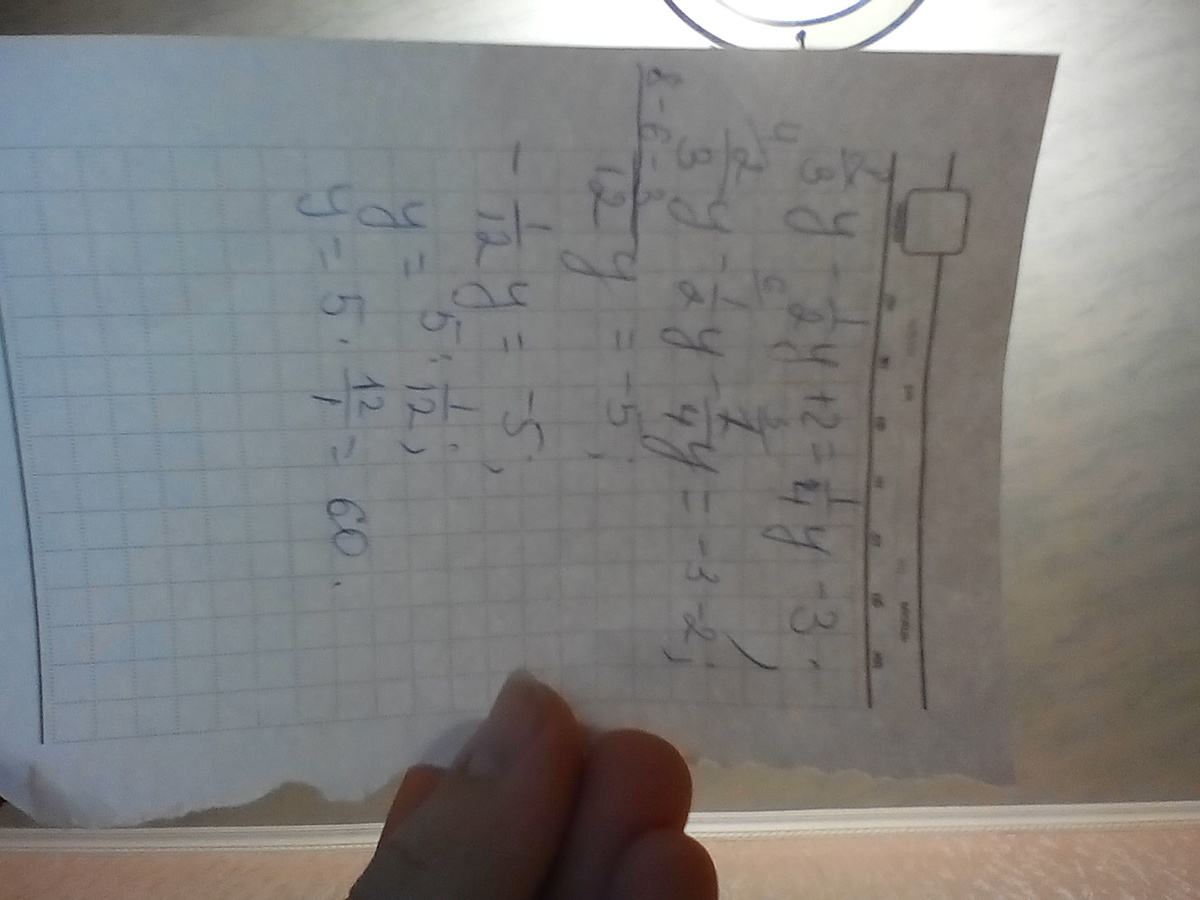 2/3 y - 1/2 y + 2 = 1/4 y - 3.
2/3 y - 1/2 y - 1/4 y = -3 - 2;
8-6-3/12 y = -5;
- 1/12 y = -5;
y = 5 : 1/12;
y = 5 · 12/1 = 60.